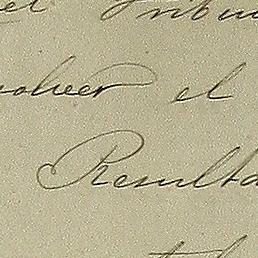 el Tribun
olver el
Resulta